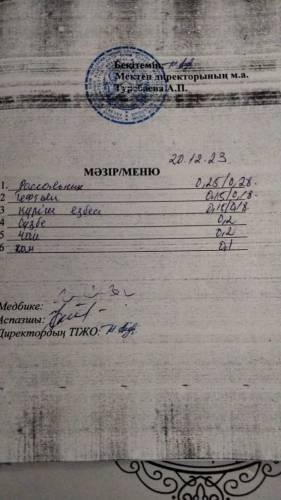 Бекітемін:
Мектеп директорының м.а.
Туребаева А.П.
20.12.23
МӘЗІР/МЕНЮ
1. Рассольник 0,25/0,28
2 тефтели 0,15/0,18
3 күріш езбесі 0,15/0,18
4 сүзбе 0,2
5 чай 0,2
6 нан 0,1
Медбике:
Аспазшы:
Директордың ТІЖО: